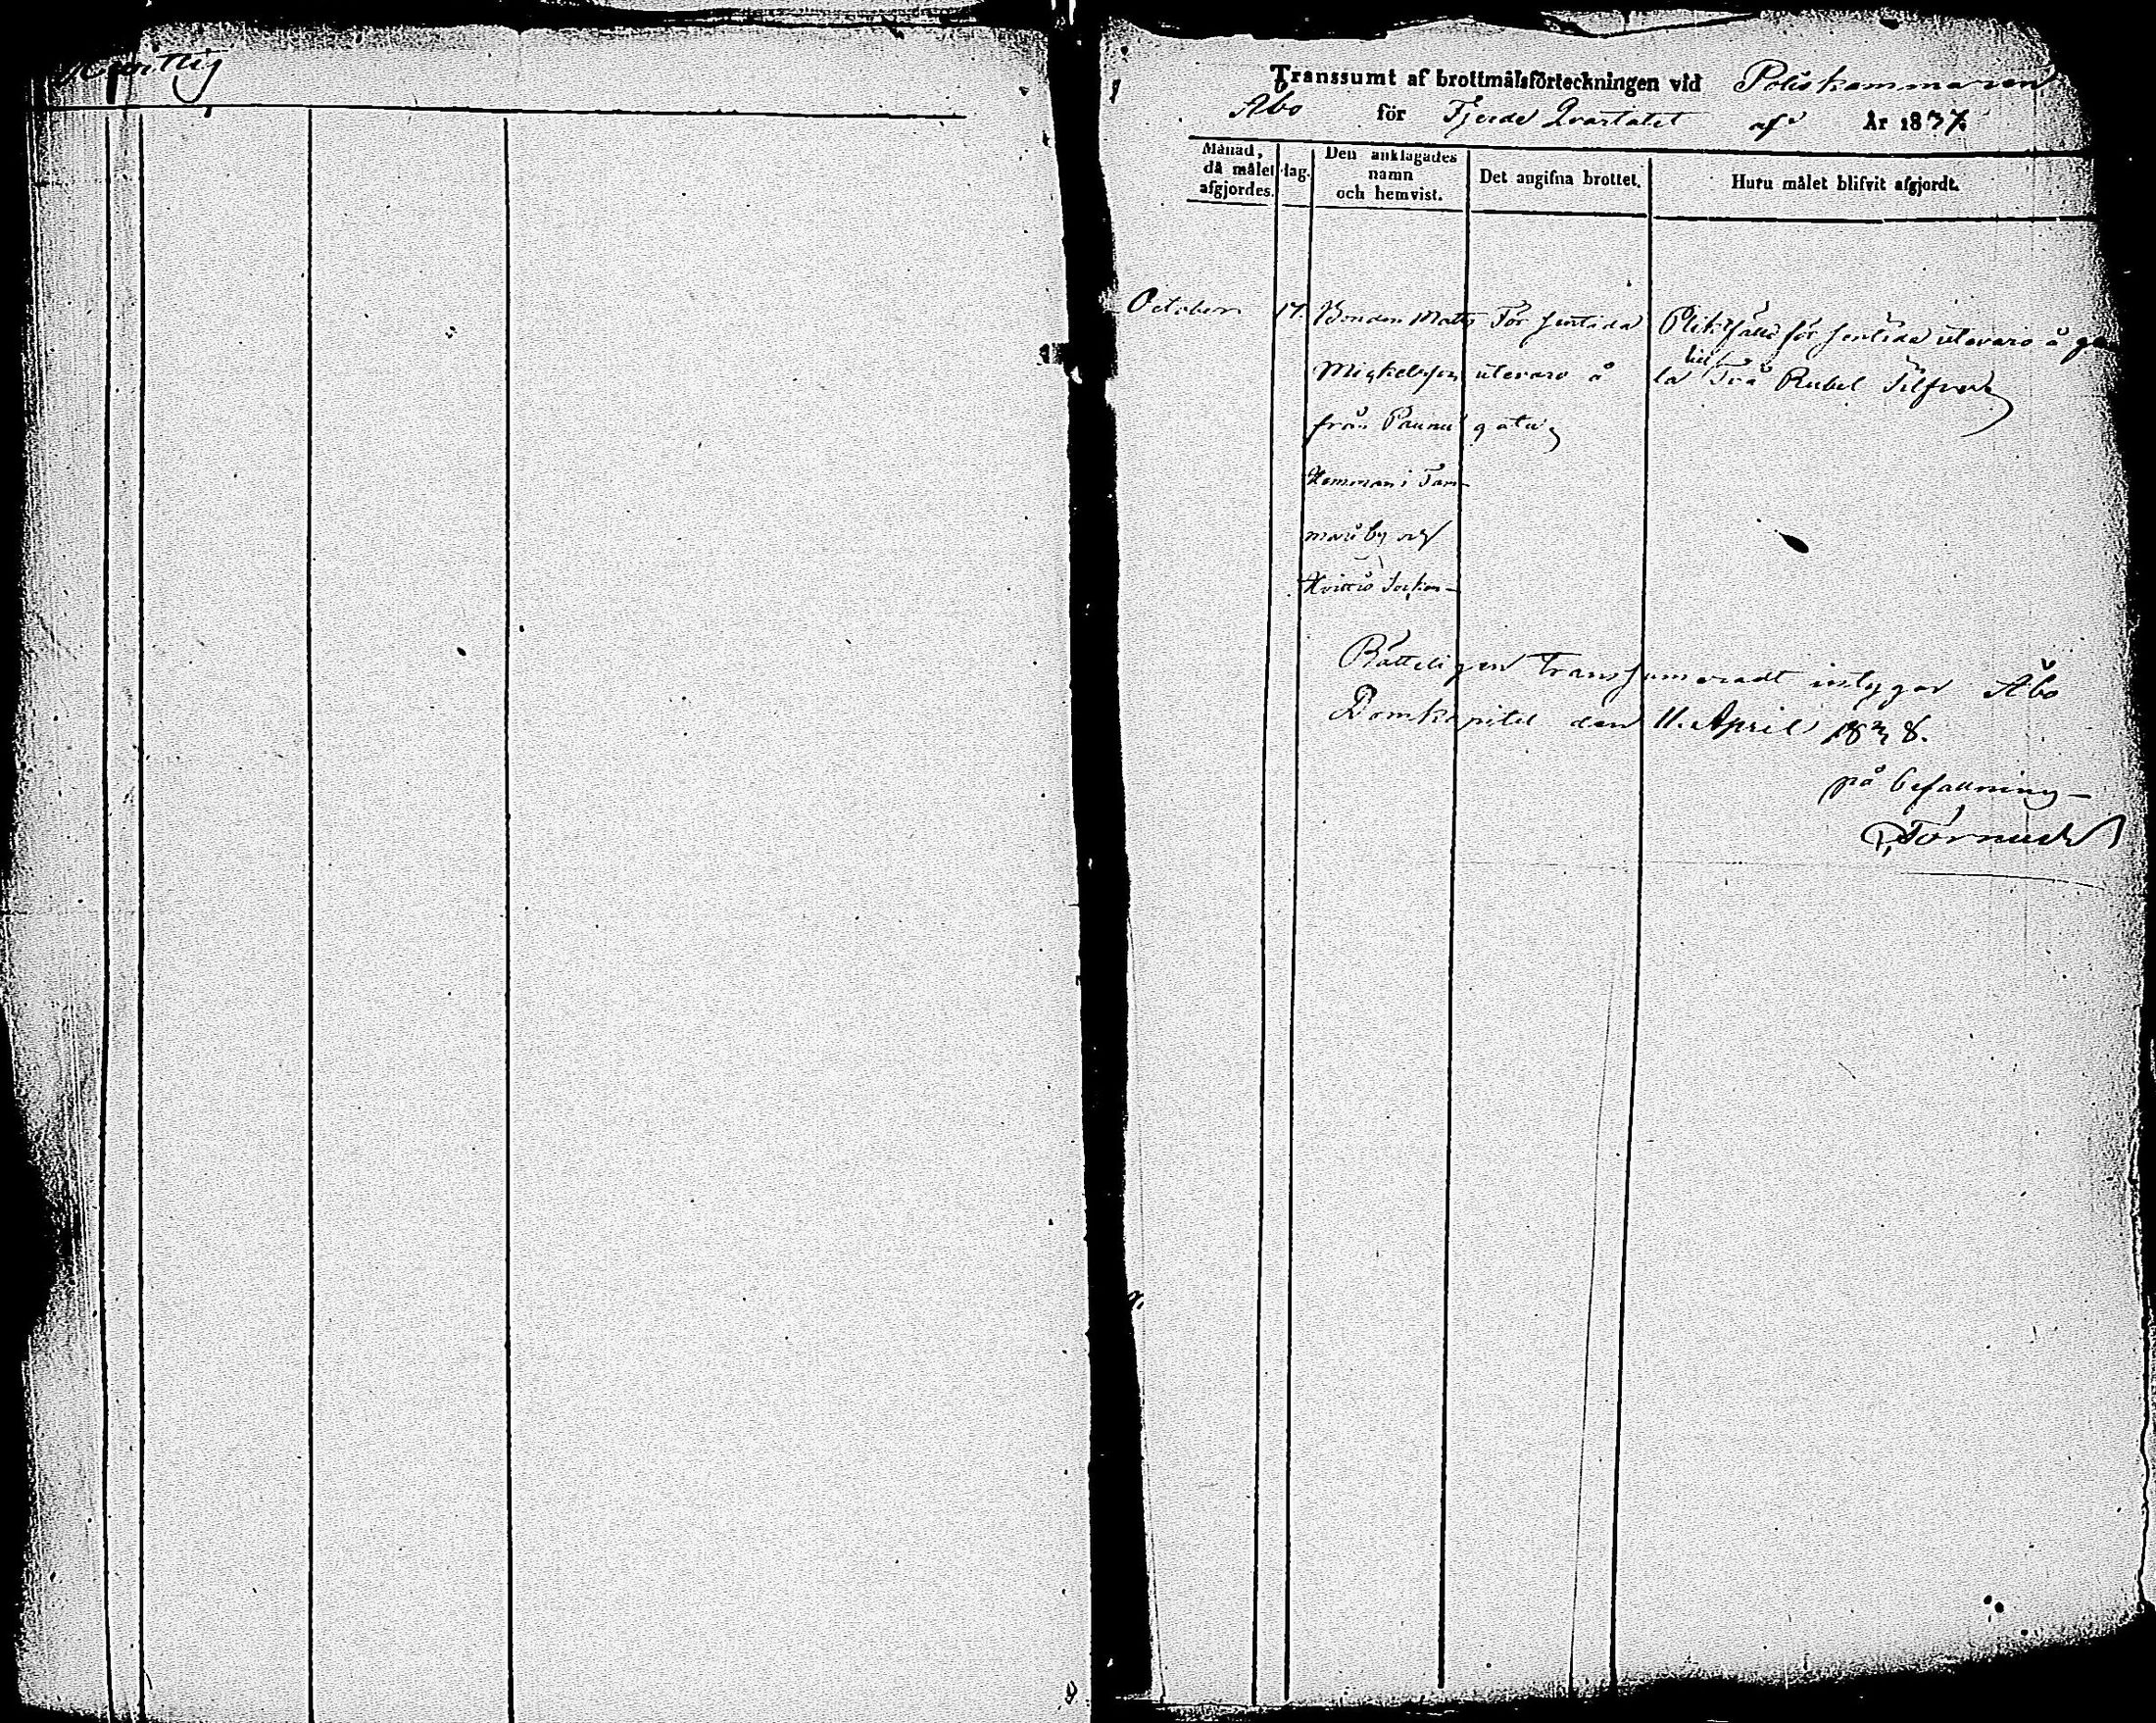 Transsumt af brottmålsförteckningen vid Poliskammaren
Åbo för Fjerde Qvartalet af År 1837.
Månad, då målet afgjordes.
dag.
Den anklagades namn och hemvist.
Det angifna brottet.
Huru målet blifvit afgjordt.
October
17.
Bonden Matts
Michelsson
från Paunu
Hemman i Tam-
mari by och
Hvittis Socken
För sentida
utevaro å
gata
Pliktfälld för sentida utevaro å ga-
ta till Två Rubel Silfver
Rätteligen Transsumeradt intygar Åbo
Domkapitel den 11. April 1838.
på befallning